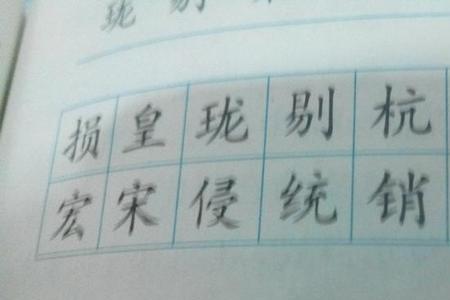 珑 别
损 皇 珑 别 杭
宏 宋 侵 统 销